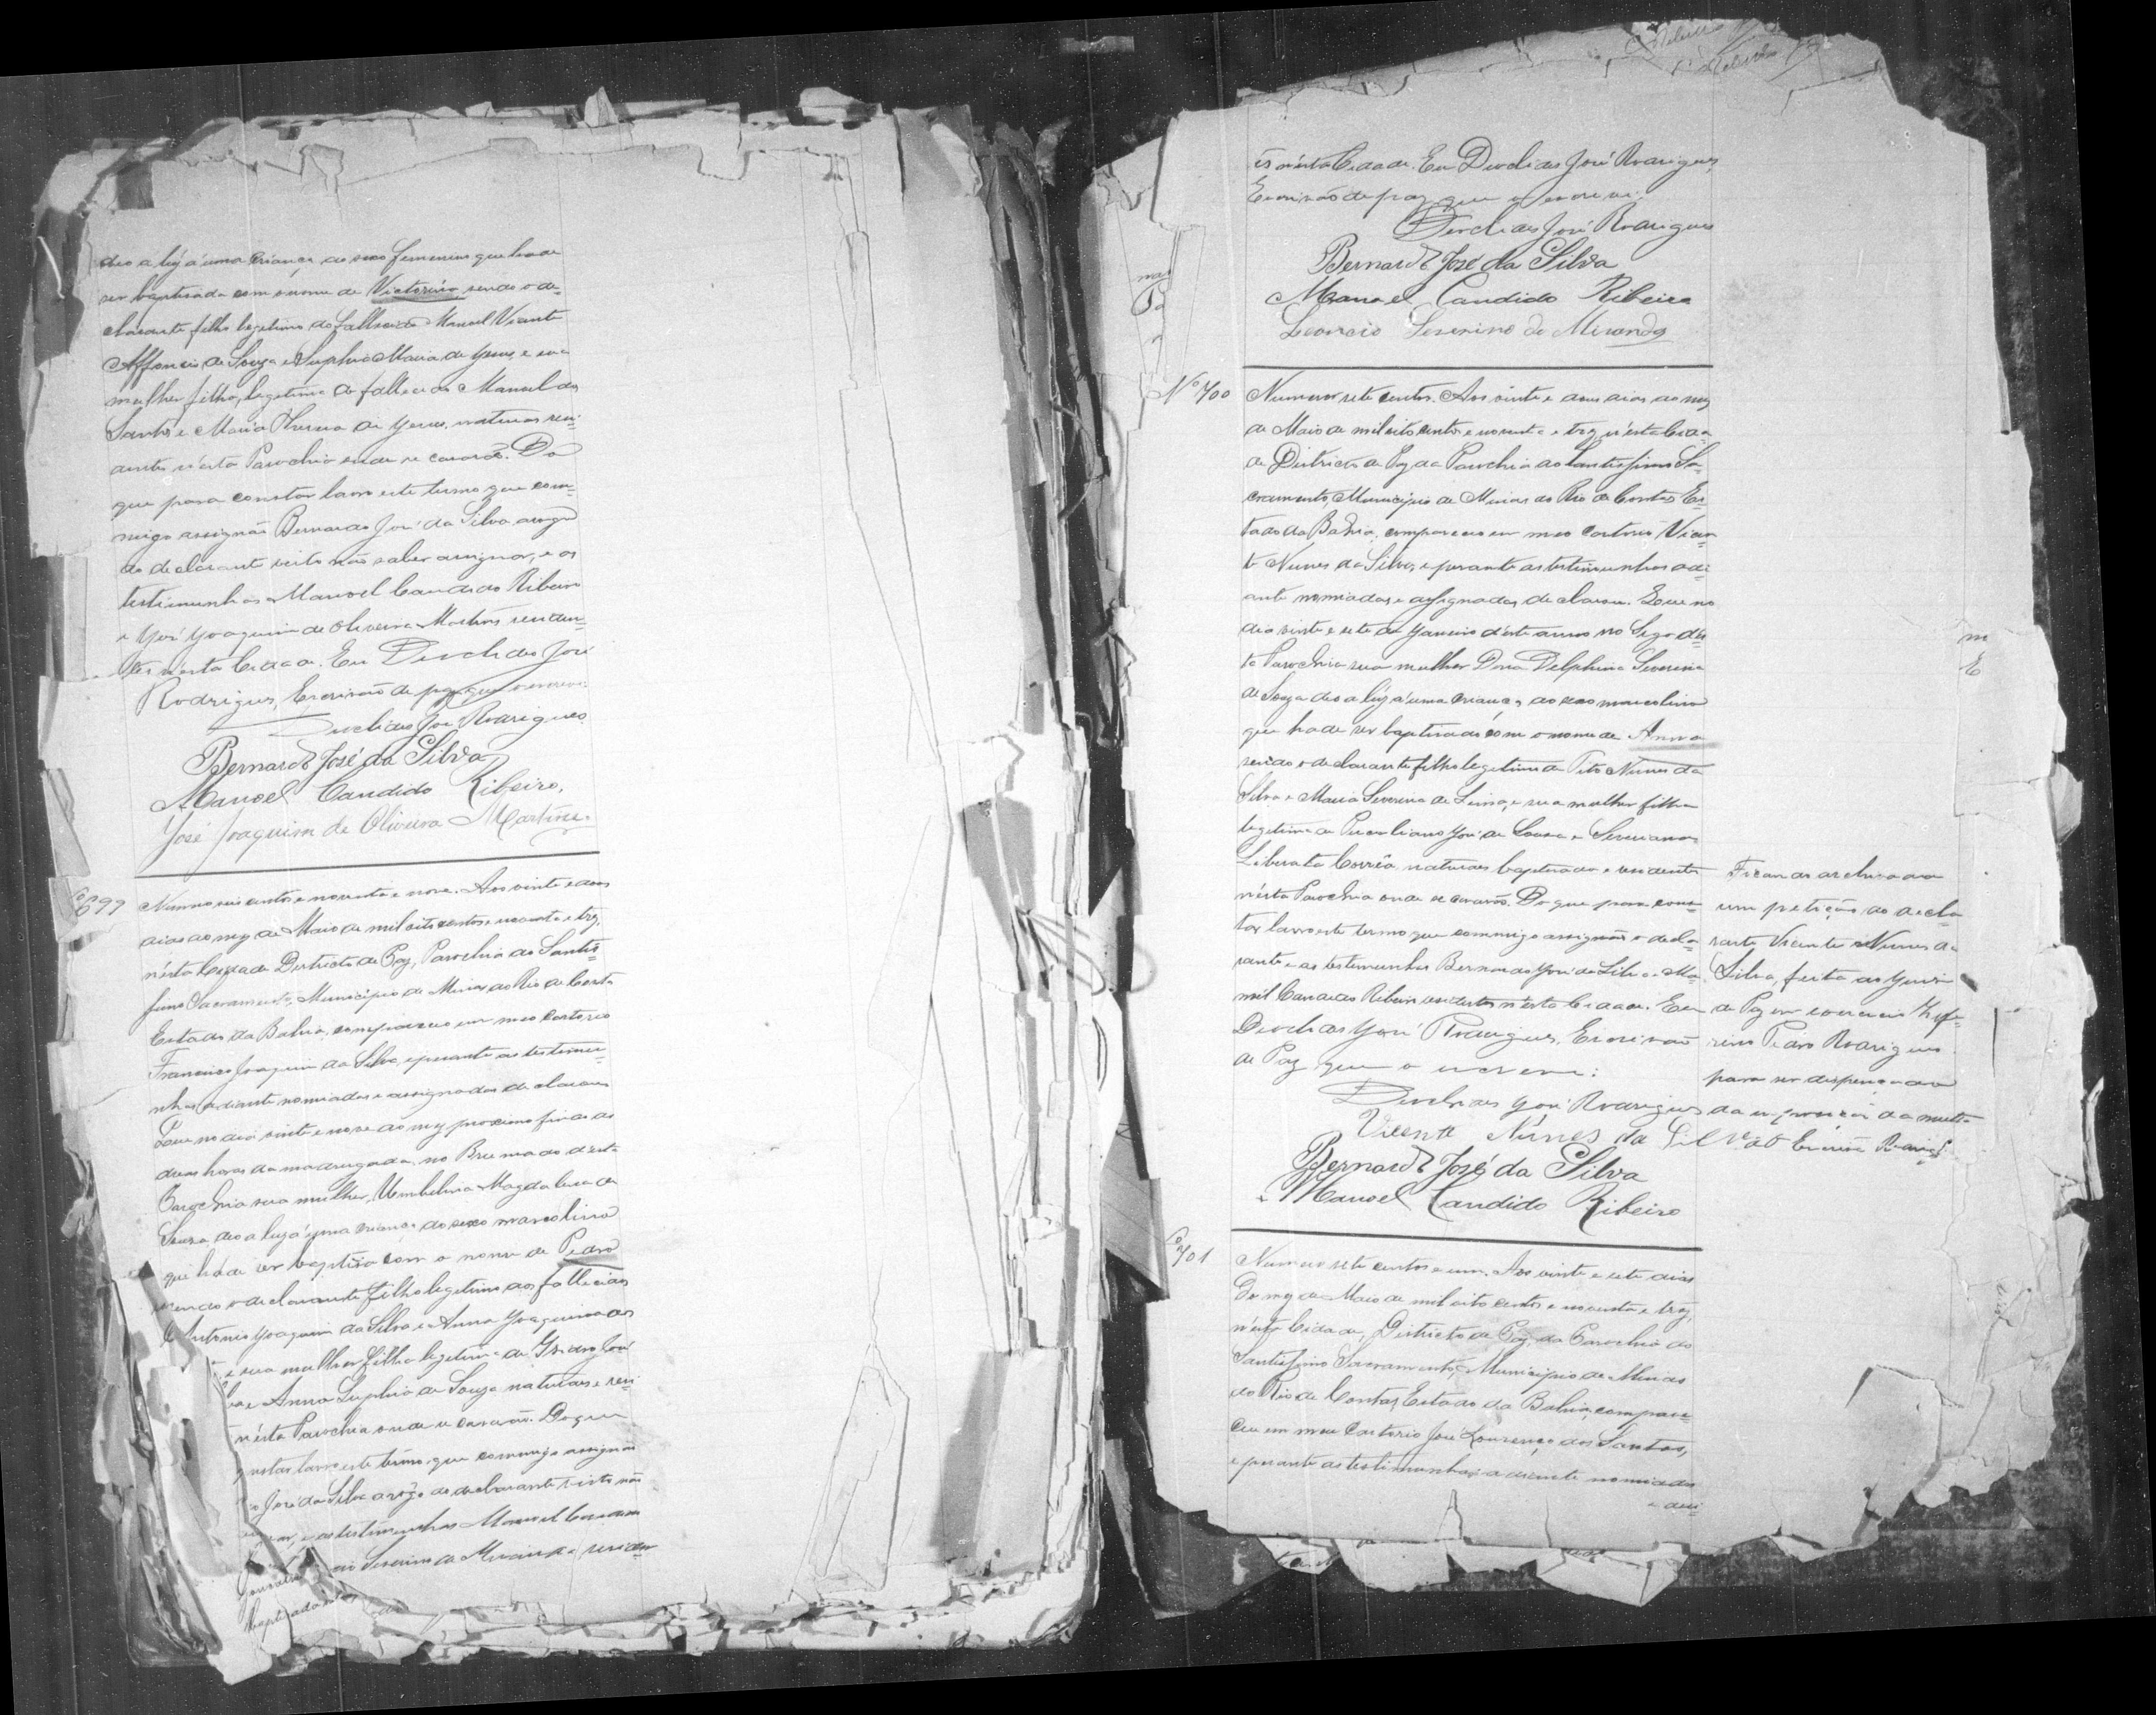 deo a luz á uma criança do sexo femenino que hade
ser baptisada com o nome de Victorina sendo o de-
clarante filho legitimo do fallecido Manoel Vicente
Affoncio de Souza e Suphia Maria de Jesus, e sua
mulher filha legitima do fallecido Manoel dos
Santos e Maria Thereza de Jesus, naturaes resi-
dentes n'ésta Parochia onde se casarão. Do
que para constar lavro este termo que com-
migo assignão Bernardo José da Silva arogo
do declarante visto não saber assignar, e as
testimunhas Manoel Candido Ribeiro
e José Joaquim de Oliveira Martins residen-
tes n'ésta Cidade. Eu Deoclides José
Rodrigues, Escrivão de paz que o escrevi.
Deoclides José Rodrigues
Bernardo José da Silva
Manoel Candido Ribeiro,
José Joaquim de Oliveira Martins.
699
Numero seis centos e noventa e nove. Aos vinte e dous
dias do mez de Maio de mil oito centos e noventa e trez,
n'ésta Cidade Districto de Paz, Parochia do Santis-
simo Sacramento, Municipio de Minas do Rio de Contas
Estado da Bahia, compareceo em meo cartorio
Francisco Joaquim da Silva, e perante as testimu-
nhas adiante nomiadas e assignadas declarou
Que no dia vinte e nove do mez proximo findo as
duas horas da madrugada, no Brumado d'ésta
Parochia sua mulher, Umbelina Magdalena de
Souza deo a luz á uma criança do sexo masculino
que hade ser baptisa com o nome de Pedro
sendo o declarante filho legitimo dos fallecidos
Antonio Joaquim da Silva e Anna Joaquina dos
e sua mulher filha legitima de Izidro José
e Anna Suphia de Souza naturaes e resi-
n'ésta Parochia onde se casarão. Do que
constar lavro este termo que commigo assignão
José da Silva arôgo do declarante visto não
assignar, e as testimunhas Manoel Candido
Severino de Miranda residen-
baptisada
és n'ésta Cidade. Eu Deoclides José Rodrigues,
Escrivão de paz que o escrevi.
Deoclides José Rodrigues
Bernardo José da Silva
Manoel Candido Ribeiro
Leoncio Severino de Miranda
Nº 700
Numero sete centos. Aos vinte e dous dias do mez
de Maio de mil oito centos e noventa e trez, n'ésta Cida-
de Districto de Paz da Parochia do Santissimo Sa-
cramento, Municipio de Minas do Rio de Contas Es-
tado da Bahia, compareceo em meo cartorio Vicen-
te Nunes da Silva, e perante as testimunhas adi-
ante nomiadas e assignadas declarou. Que no
dia vinte e sete de Janeiro d'este anno no d'és-
ta Parochia sua mulher Dona Delphina Severina
de Souza deo a luz á uma criança do sexo masculino
que hade ser baptisada com o nome de Anna
sendo o declarante filho legitimo de Tito Nunes da
Silva e Maria Severina de Lima, e sua mulher filha
legitima de José de Souza e Severiana
Liberata Corrêa, naturaes baptisados e residentes
n'ésta Parochia onde se casarão. Do que para cons-
tar lavro este termo que commigo assignão o decla-
rante e as testemunhas Bernardo José da Silva e Ma-
noel Candido Ribeiro residentes n'ésta Cidade. Eu
Deoclides José Rodrigues, Escrivão
de Paz que o escrevi:
Deoclides José Rodrigues
Vicente Nunes da Silva
Bernardo José da Silva
Manoel Candido Ribeiro
Ficando archivada
uma petição do decla
rante Vicente Nunes da
Silva, feita ao Juiz
de Paz em exercicio
Pedro Rodrigues
para ser dispençado
da imposição da multa
O Escrivão Rodrigues
701
Numero sete centos e um. Aos vinte e sete dias
Do mez de Maio de mil oito centos e noventa e trez,
n'ésta Cidade, Districto de Paz, da Parochia do
Santissimo Sacramento, Municipio de Minas
do Rio de Contas, Estado da Bahia, compare-
ceu em meu Cartorio José Lourenço dos Santos,
e perante as testimunhas adiante nomiadas